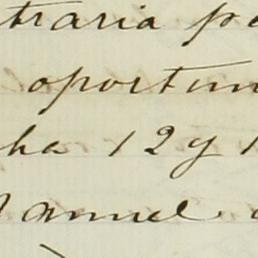 traria p
oportun
ha 12 y 1
Manuel